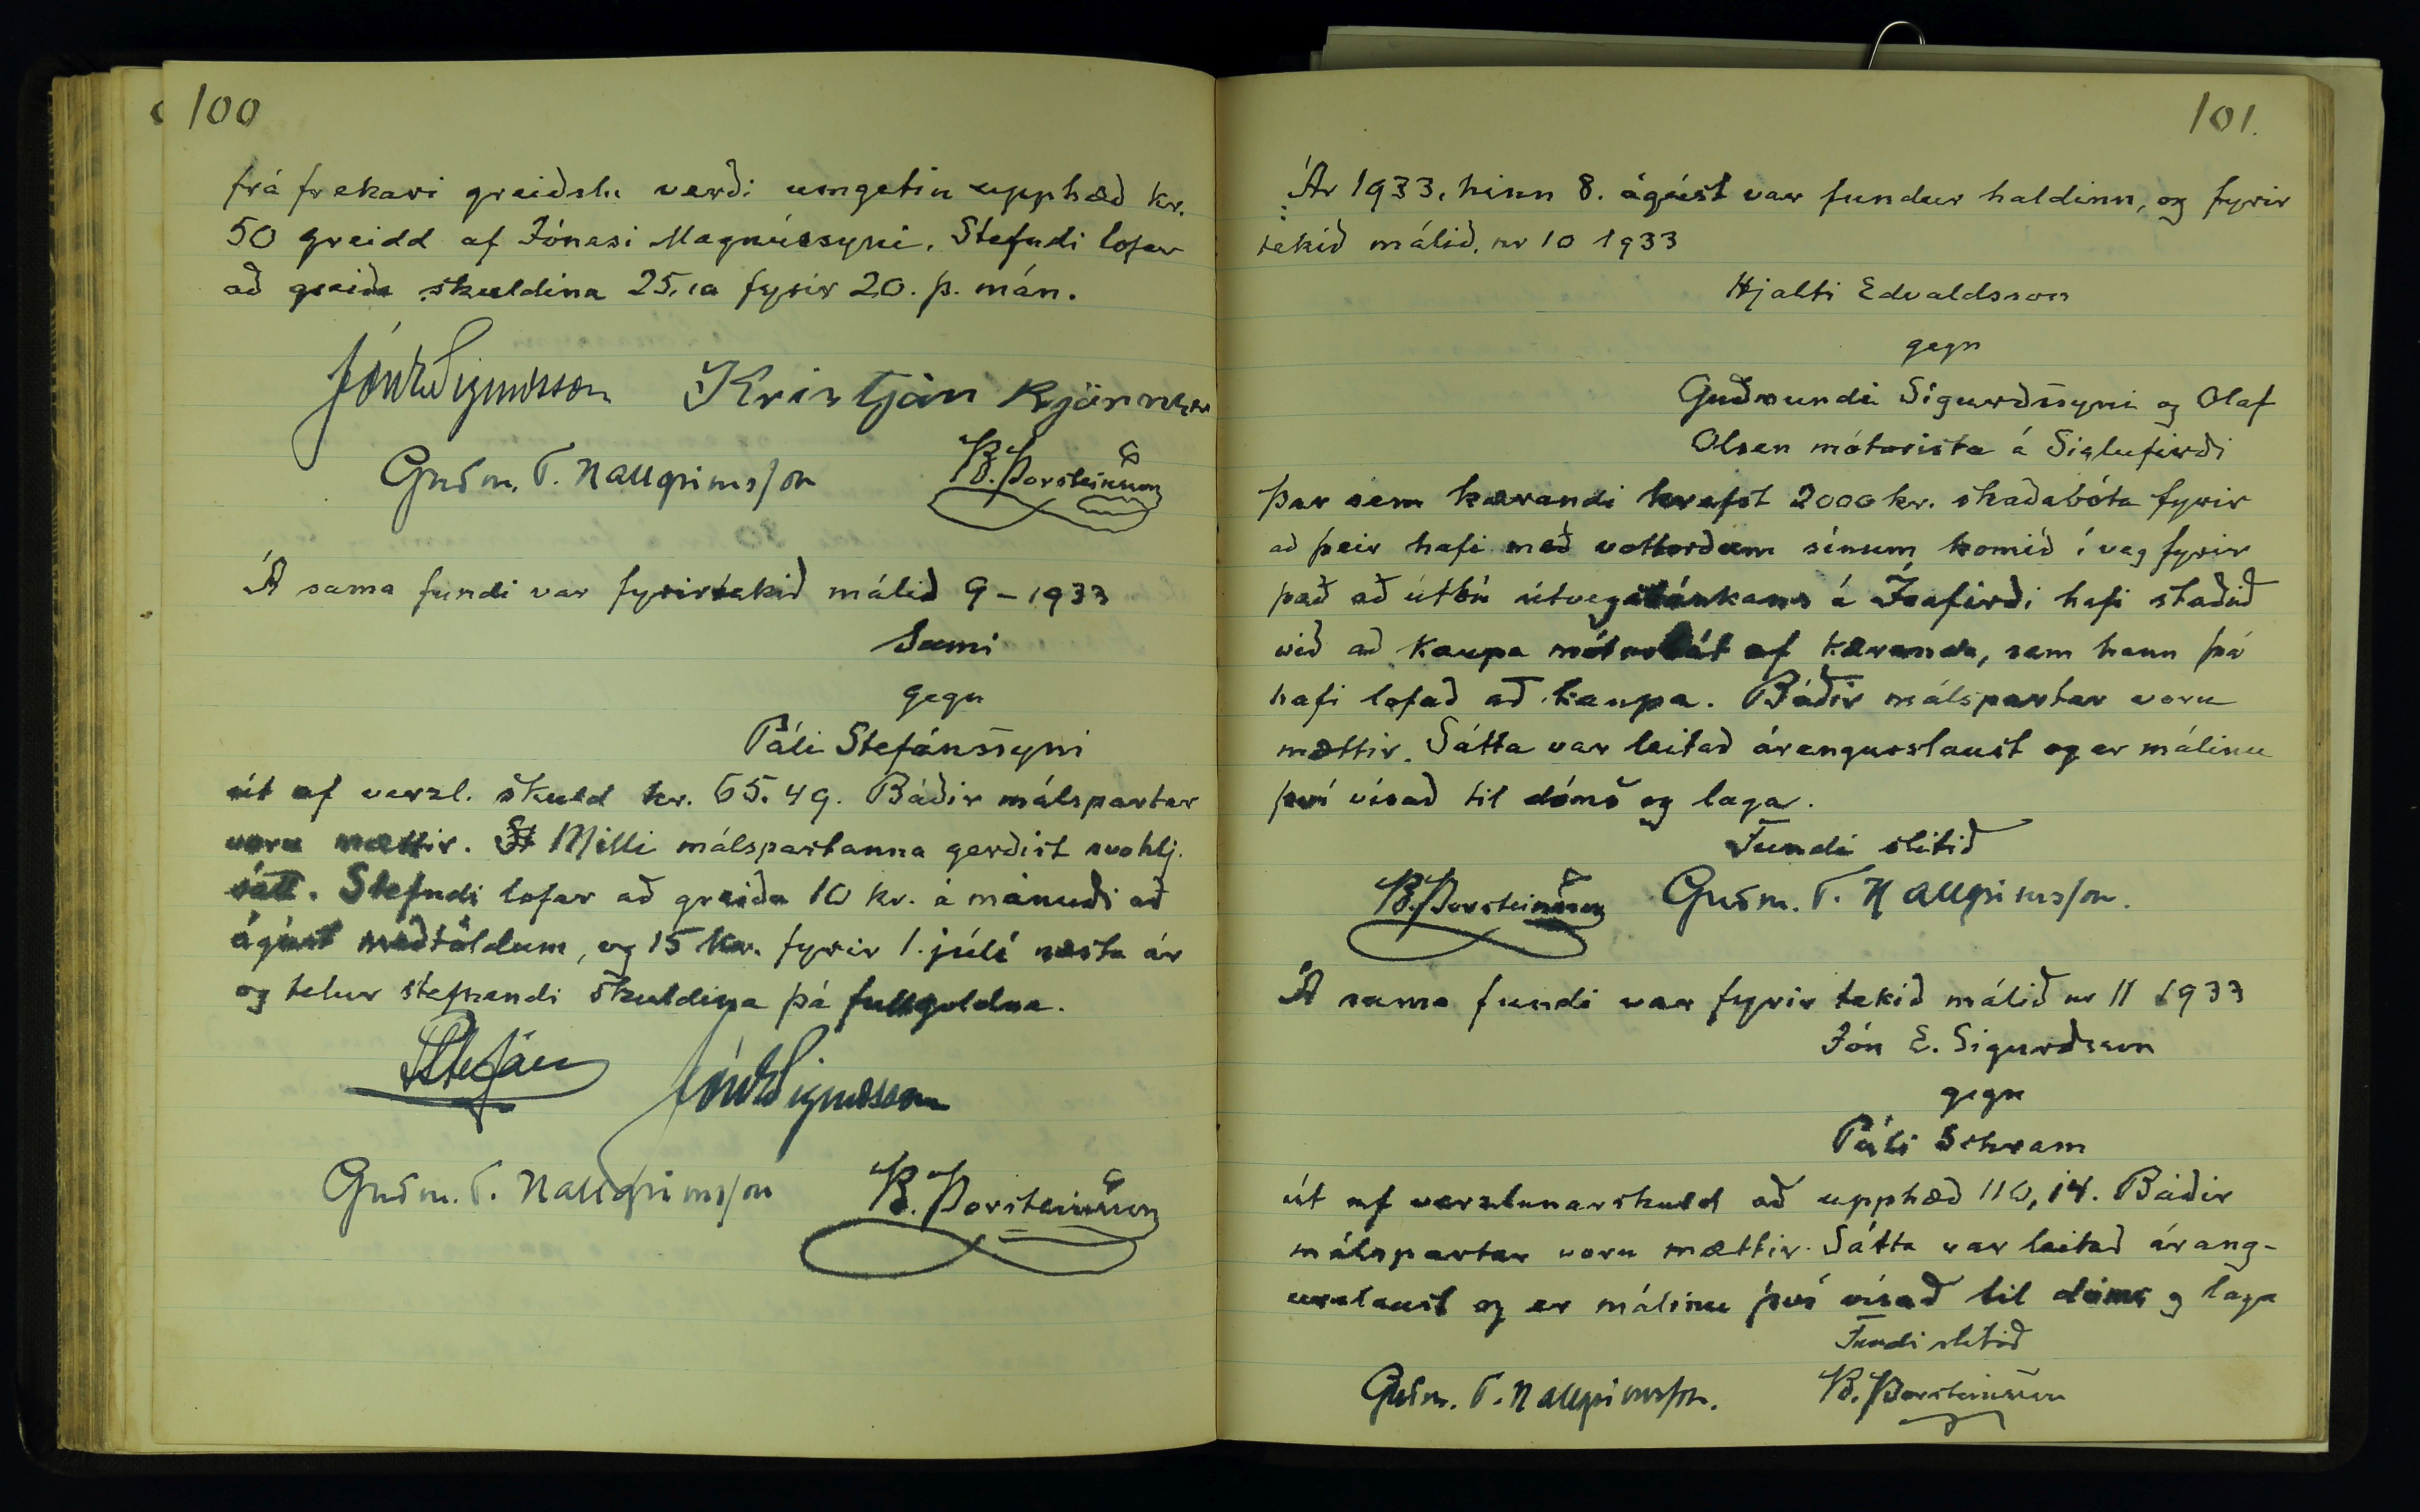 100
frá frekari greiðslu verði umgetin upphæð kr.
50 greidd af Jónasi Magnússyni. Stefndi lofar
að greiða skuldina 25, fyrir 20. þ. mán.
Jón E Sigurðsson Kristján Kjartansson
Guðm. T. Hallgrímsson B. Þorsteinsson
Á sama fundi var fyrirtekið málið 9 - 1933
Sami
gegn
Páli Stefánssyni
út af verzl. skuld kr. 65.49. Báðir málspartar
voru mættir. St Milli málspartanna gerðist svohlj.
sátt. Stefndi lofar að greiða 10 kr. á mánuði að
ágúst meðtöldum, og 15 kr. fyrir 1. júlí næsta ár
og telur stefnandi skuldina þá fullgoldna.
PStefáns Jón E Sigurðsson
Guðm. T. Hallgrímsson B. Þorsteinsson
101.
Ár 1933, hinn 8. ágúst var fundur haldinn, og fyrir
tekið málið, nr 10 1933
Hjalti Edvaldsson
gegn
Guðmundi Sigurðssyni og Olaf
Olsen mótorista á Siglufirði
þar sem kærandi krefst 2000 kr. skaðabóta fyrir
að þeir hafi með vottorðum sínum komið í veg fyrir
það að útbú útvegsbankans á Ísafirði hafi staðið
við að kaupa mótorbát af kæranda, sem hann þá
hafi lofað að kaupa. Báðir málspartar voru
mættir. Sátta var leitað árangurslaust og er málinu
því vísað til dóms og laga.
Fundi slitið
B. Þorsteinsson Guðm. T. Hallgrímsson.
Á sama fundi var fyrir tekið málið nr 11 1933
Jón E. Sigurðsson
gegn
Páli Schram
út af verzlunarskuld að upphæð 116,14. Báðir
málspartar voru mættir. Sátta var leitað árang-
urslaust og er málinu því vísað til dóms og laga
Fundi slitið
Guðm. T. Hallgrímsson. B. Þorsteinsson